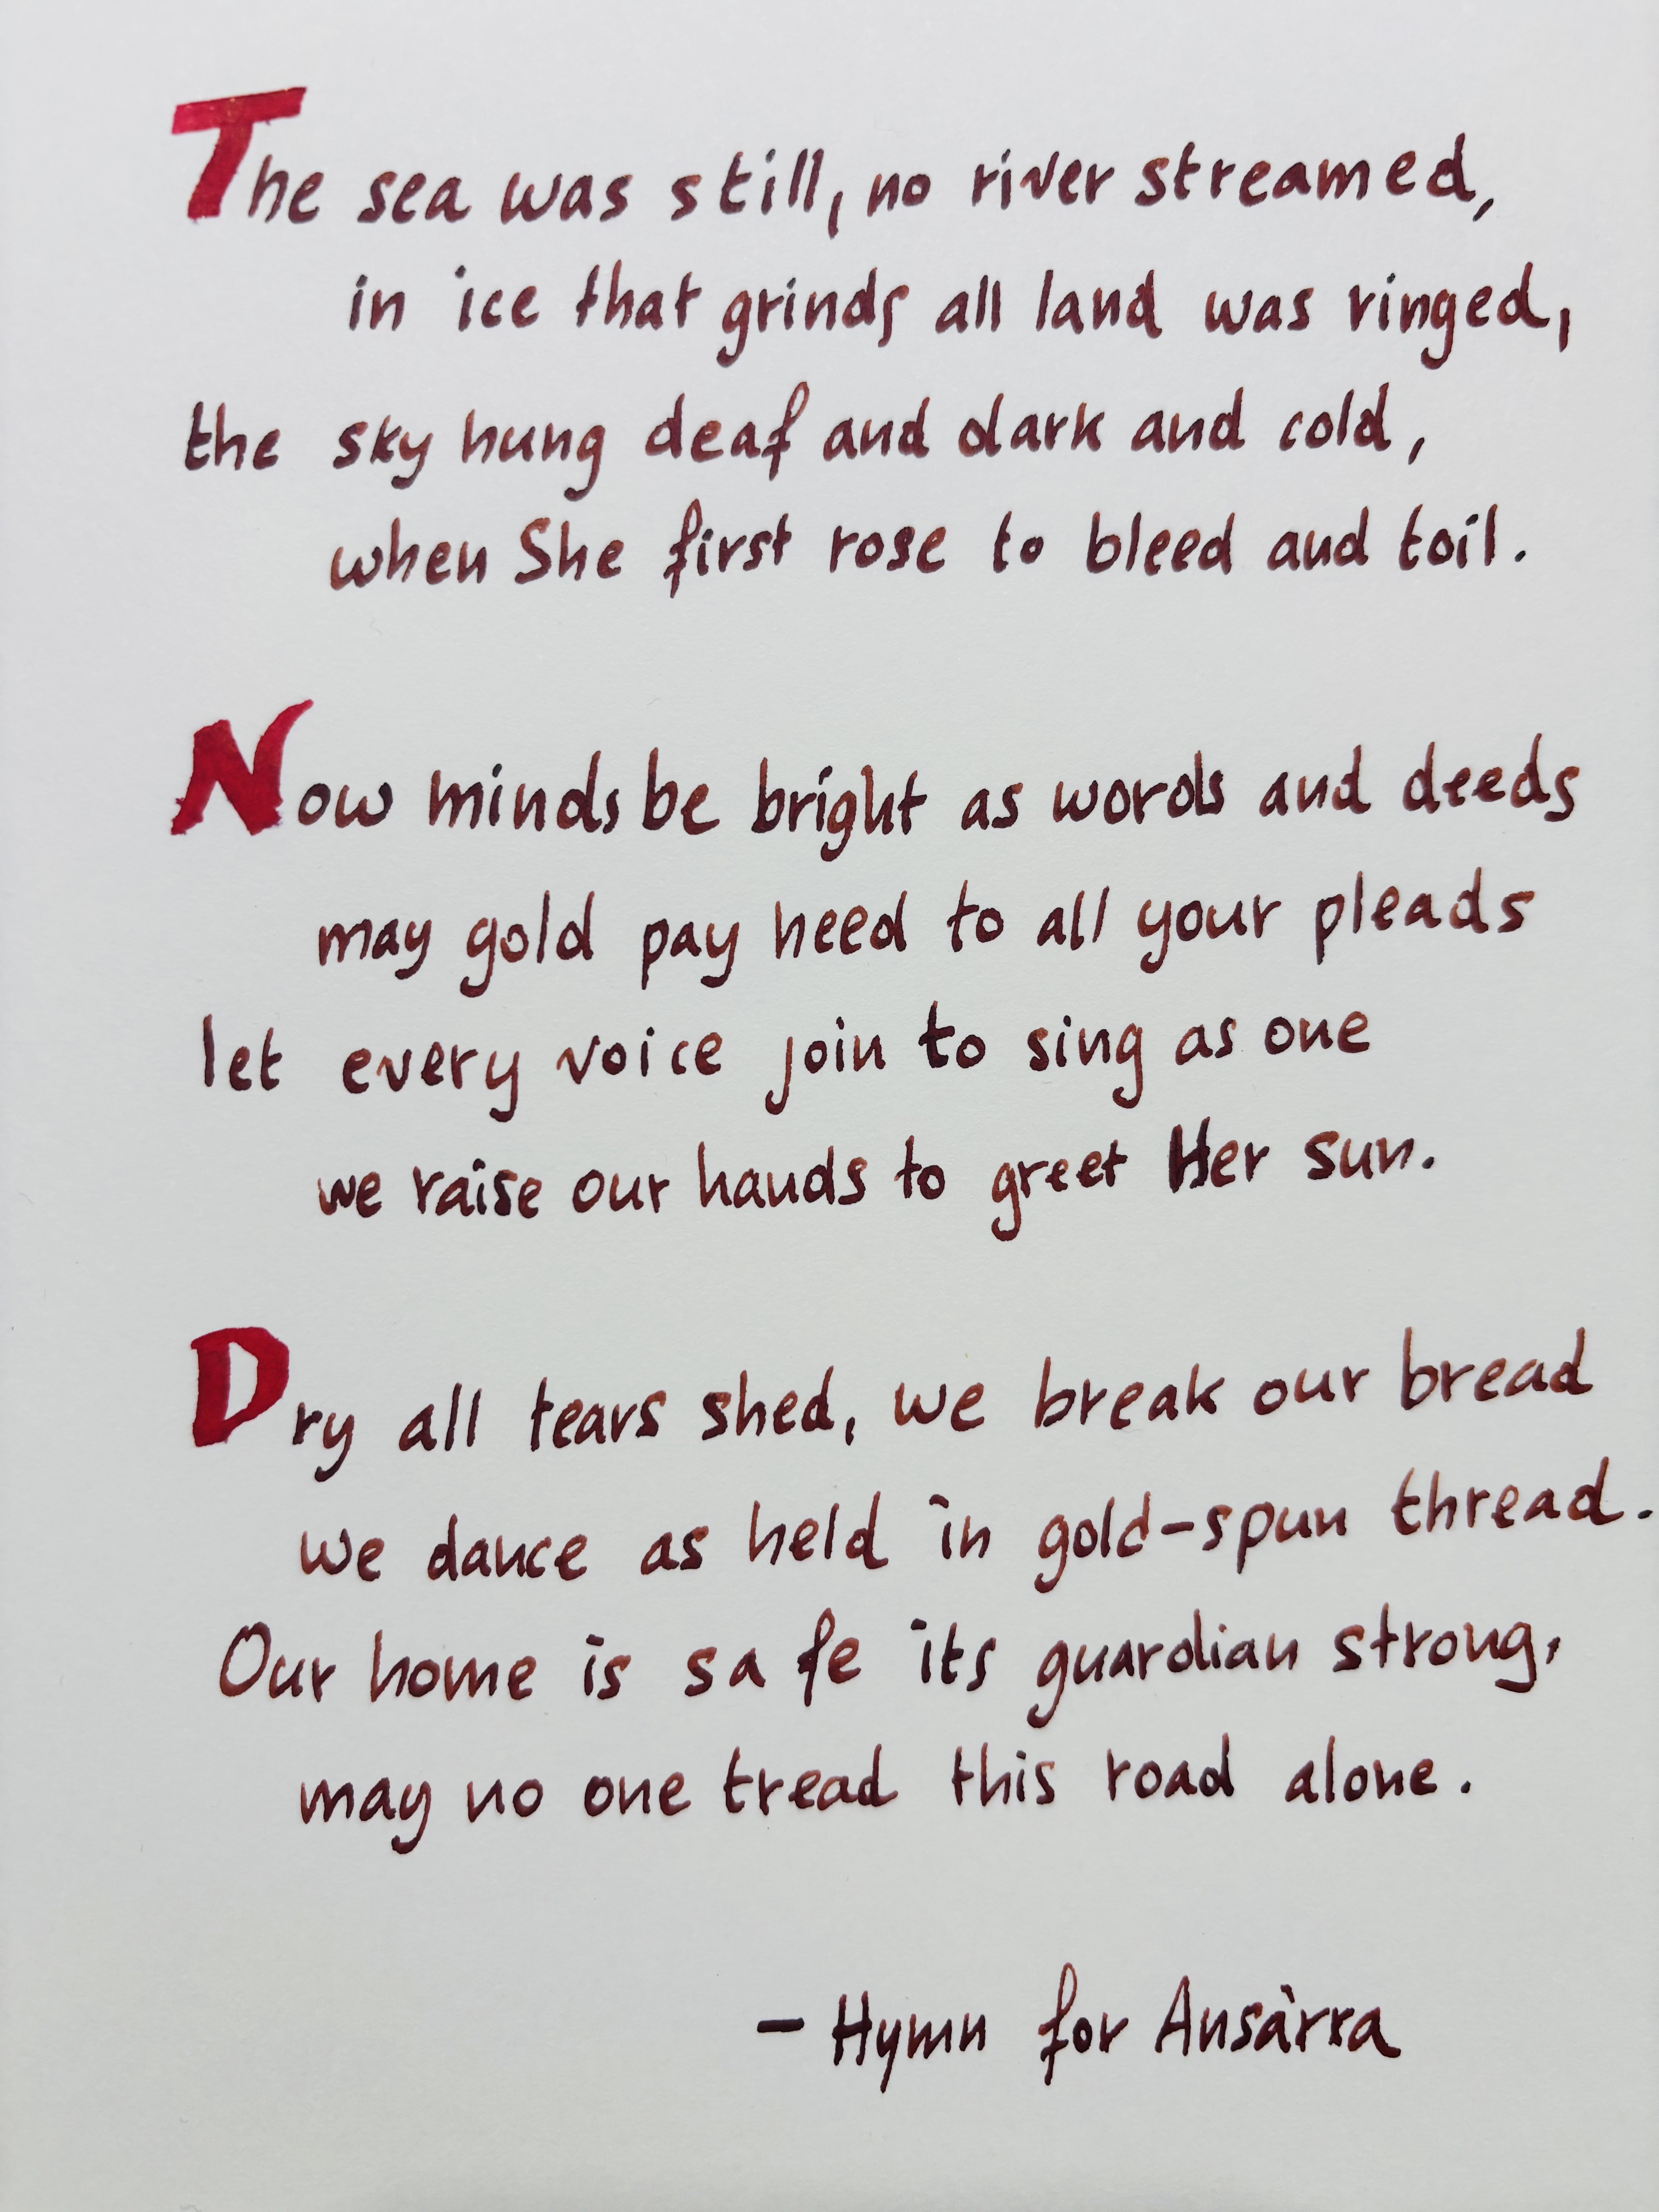 The sea was still, no river streamed,
in ice that grinds all land was ringed,
the sky hung deaf and dark and cold,
when She first rose to bleed and toil.
Now minds be bright as words and deeds
may gold pay heed to all your pleads
let every voice join to sing as one
we raise our hands to greet Her sun.
Dry all tears shed, we break our bread
we dance as held in gold-spun thread.
Our home is safe its guardian strong,
may no one tread this road alone.
– Hymn for Ansàrra